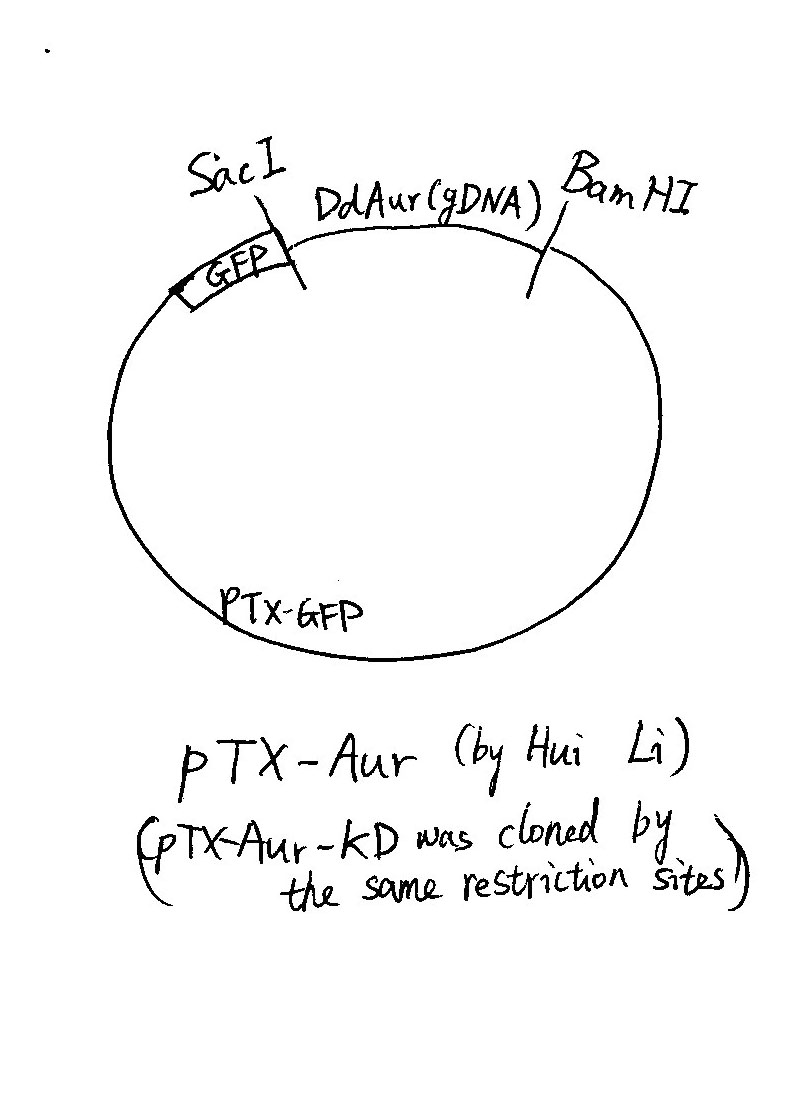 SacI
DdAur(gDNA)
BamHI
GFP
pTX-GFP
pTX-Aur (by Hui Li)
(pTX-Aur-KD was cloned by
the same restriction sites)